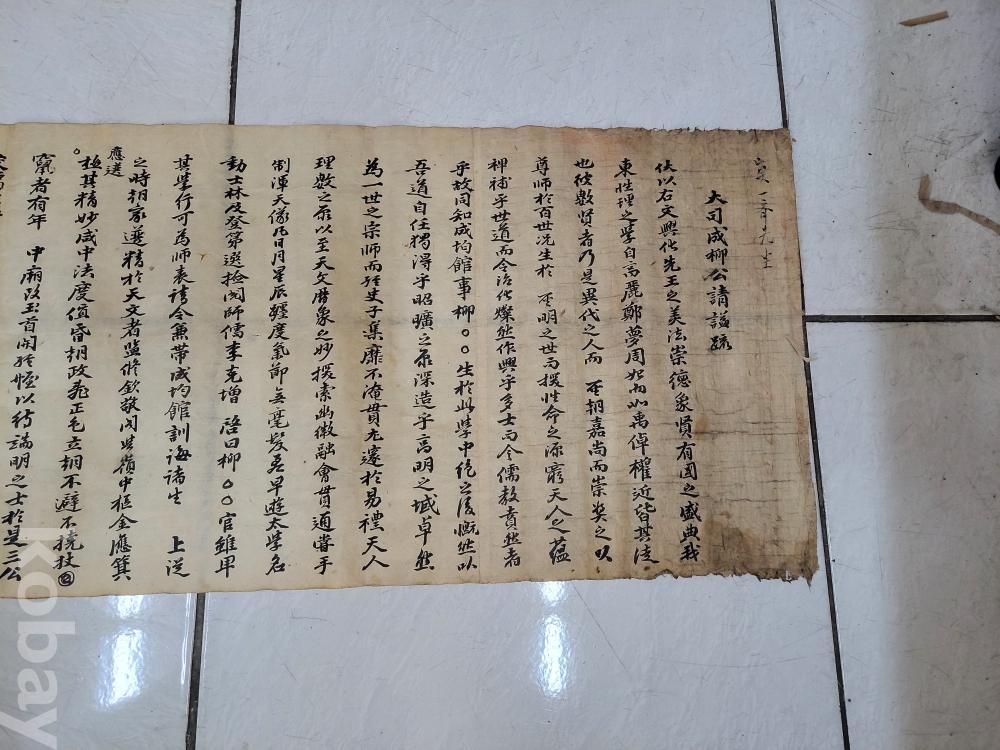 大司成柳公請謚疏
伏以右文興化先王之美法崇德象賢有國之盛典我
東性理之學自高麗鄭夢周始而如禹倬權近皆其流
也彼數賢者乃是異代之人而 聖朝嘉尚而崇奖之以
尊師於百世况生於 聖明之世而探性命之源窮天人之蘊
裨補乎世道而令治化燦然作興乎多士而令儒教賁然者
乎故同知成均館事柳〇〇生於此學中絶之後慨然以
吾道自任獨得乎昭曠之原深造乎高明之域卓然
為一世之宗師而經史子集靡不淹貫尤邃於易禮天人
理數之原以至天文曆象之妙探索幽微融會貫通甞手
制渾天儀凡日月星辰纏度氣節無毫髮差早遊太學名
動士林及登第選撿閱師儒李克增 啓曰柳〇〇官雖卑
其學行可為師表請令兼帶成均館訓誨諸生 上從
之時朝家遴精於天文者監修欽敬閣 嶺中樞金應箕
應選
極其精妙咸中法度 昏朝政亂正色立朝不避不撓
竄者有年 中廟改玉首開經以待端明之士於是三公
Kobay